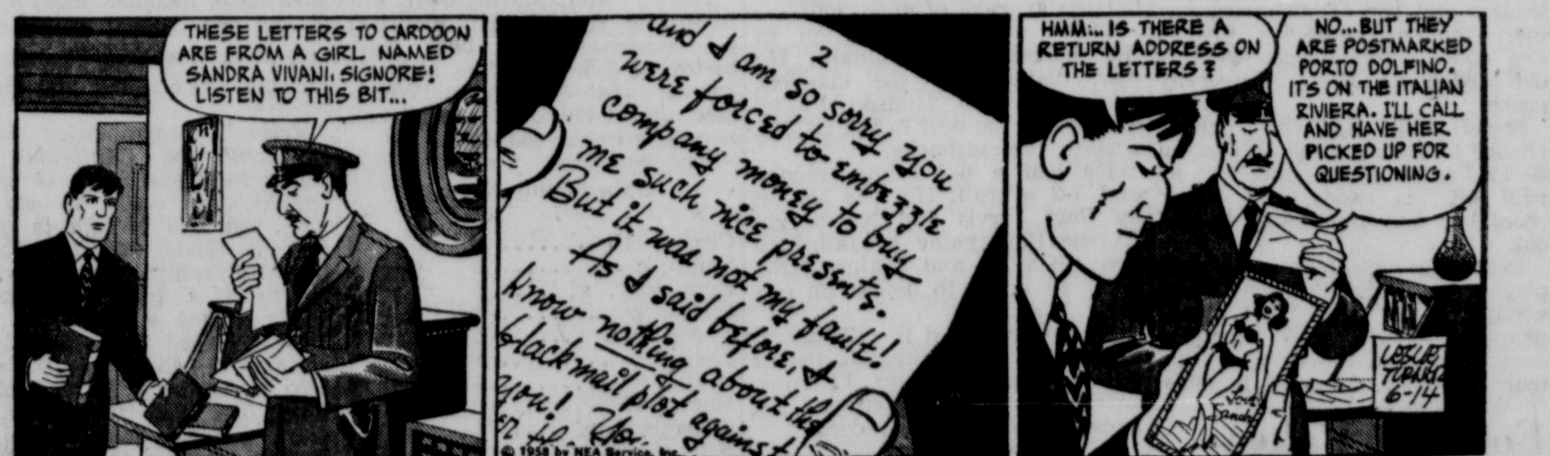 THESE LETTERS TO CARDOON
ARE FROM A GIRL NAMED
SANDRA VIVANI, SIGNORE!
LISTEN TO THIS BIT...
2
and I am so sorry you
were forced to embezzle
company money to buy
me such nice presents.
But it was not my fault!
As I said before, I
know nothing about the
blackmail plot against
you! You
© 1958 by NEA Service, Inc.
HMM... IS THERE A
RETURN ADDRESS ON
THE LETTERS?
NO...BUT THEY
ARE POSTMARKED
PORTO DOLFINO.
IT'S ON THE ITALIAN
RIVIERA. I'LL CALL
AND HAVE HER
PICKED UP FOR
QUESTIONING.
Love
Sandra
LESLIE
TURNER
6-14